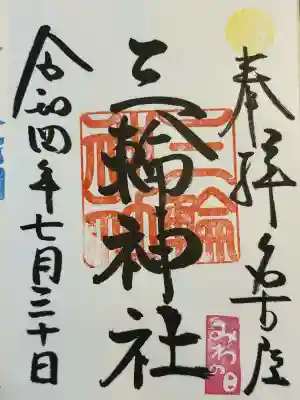 奉拝 名古屋
三輪神社
三輪神社
みわの日
令和四年七月三十日